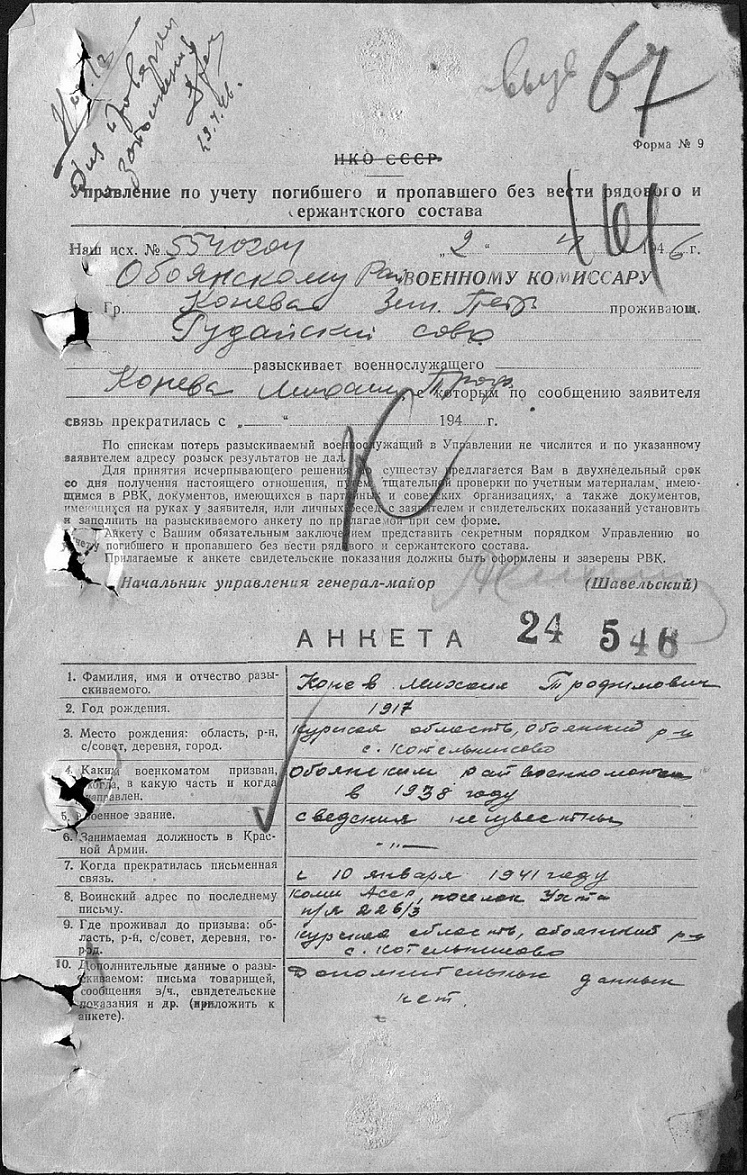 для проверки
67
Форма № 9
НКО СССР
Управление по учету погибшего и пропавшего без вести рядового и
сержантского состава
Наш исх. № „2“ 4 1946 г.
Обоянскому Рай ВОЕННОМУ КОМИССАРУ
Гр. Конева Петр проживающ.
разыскивает военнослужащего
Конева Михаила Троф. с которым по сообщению заявителя
связь прекратилась с „ “ 194 г.
По спискам потерь разыскиваемый военнослужащий в Управлении не числится и по указанному
заявителем адресу розыск результатов не дал.
Для принятия исчерпывающего решения по существу предлагается Вам в двухнедельный срок
со дня получения настоящего отношения, путем тщательной проверки по учетным материалам, имею-
щимся в РВК, документов, имеющихся в партийных и советских организациях, а также документов,
имеющихся на руках у заявителя, или личных бесед с заявителем и свидетельских показаний установить
и заполнить на разыскиваемого анкету по прилагаемой при сем форме.
Анкету с Вашим обязательным заключением представить секретным порядком Управлению по
учету погибшего и пропавшего без вести рядового и сержантского состава.
Прилагаемые к анкете свидетельские показания должны быть оформлены и заверены РВК.
Начальник управления генерал-майор (Шавельский)
АНКЕТА 24 546
1. Фамилия, имя и отчество разы-
скиваемого.
Конев Михаил Трофимович
2. Год рождения.
1917
3. Место рождения: область, р-н,
с/совет, деревня, город.
Курская область, Обоянский р-н
с. Котельниково
4. Каким военкоматом призван,
когда, в какую часть и когда
направлен.
Обоянским райвоенкоматом
в 1938 году
5. Военное звание.
сведения неизвестны
6. Занимаемая должность в Крас-
ной Армии.
-"-
7. Когда прекратилась письменная
связь.
с 10 января 1941 году
8. Воинский адрес по последнему
письму.
Коми Асср, поселок Ухта
п/я 226/3
9. Где проживал до призыва: об-
ласть, р-н, с/совет, деревня, го-
род.
Курская область, обоянский р-н
с. Котельниково
10. Дополнительные данные о разы-
скиваемом: письма товарищей,
сообщения в/ч., свидетельские
показания и др. (приложить к
анкете).
Дополнительных данных
нет.